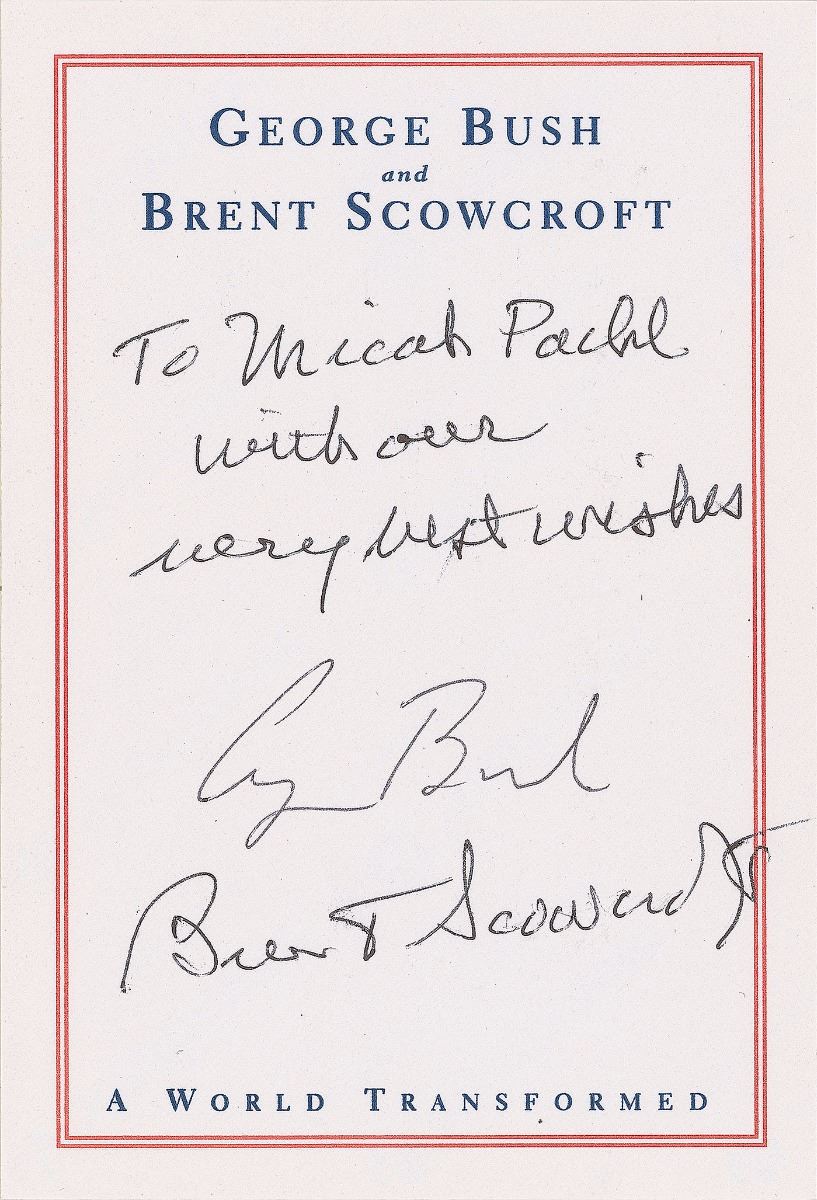 GEORGE BUSH
and
BRENT SCOWCROFT
To Micah
with our
very best wishes
George Bush
Brent Scowcroft
A WORLD TRANSFORMED